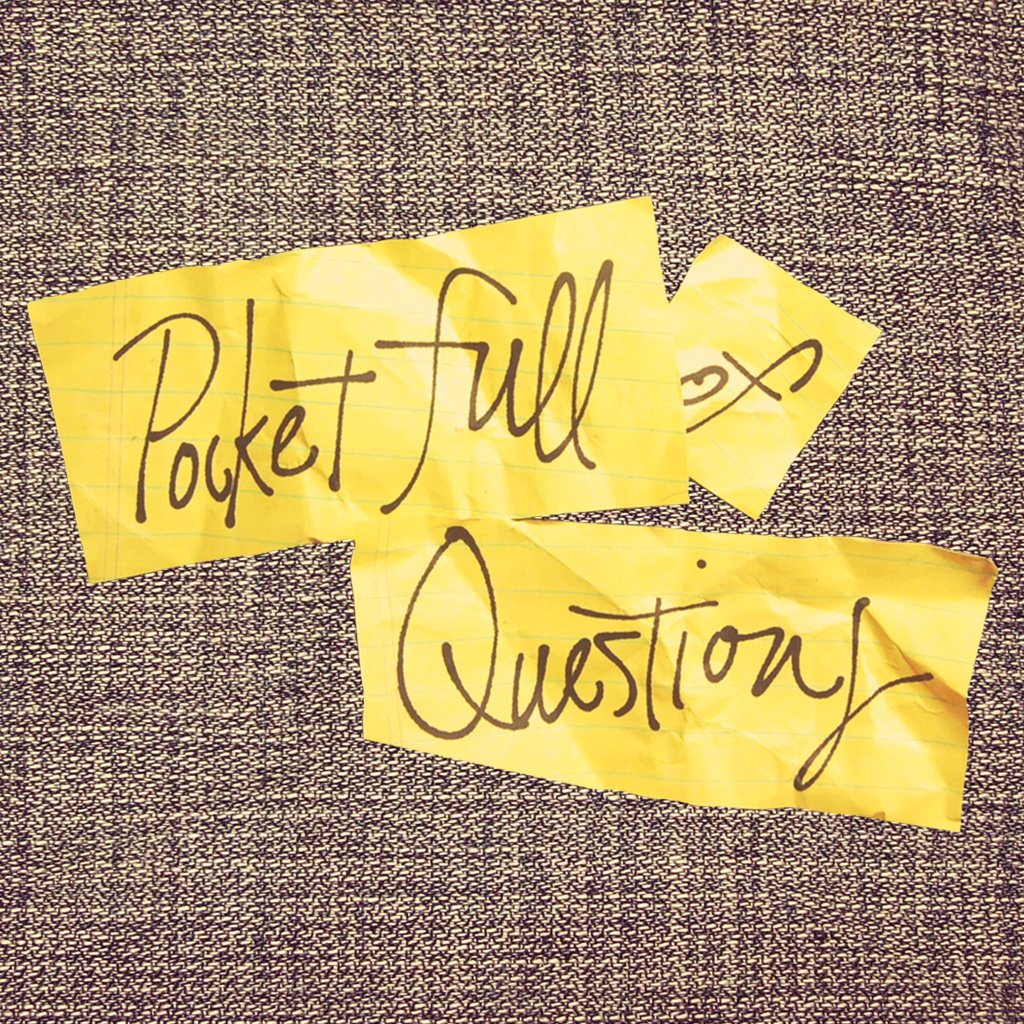 Pocket full
of
Questions